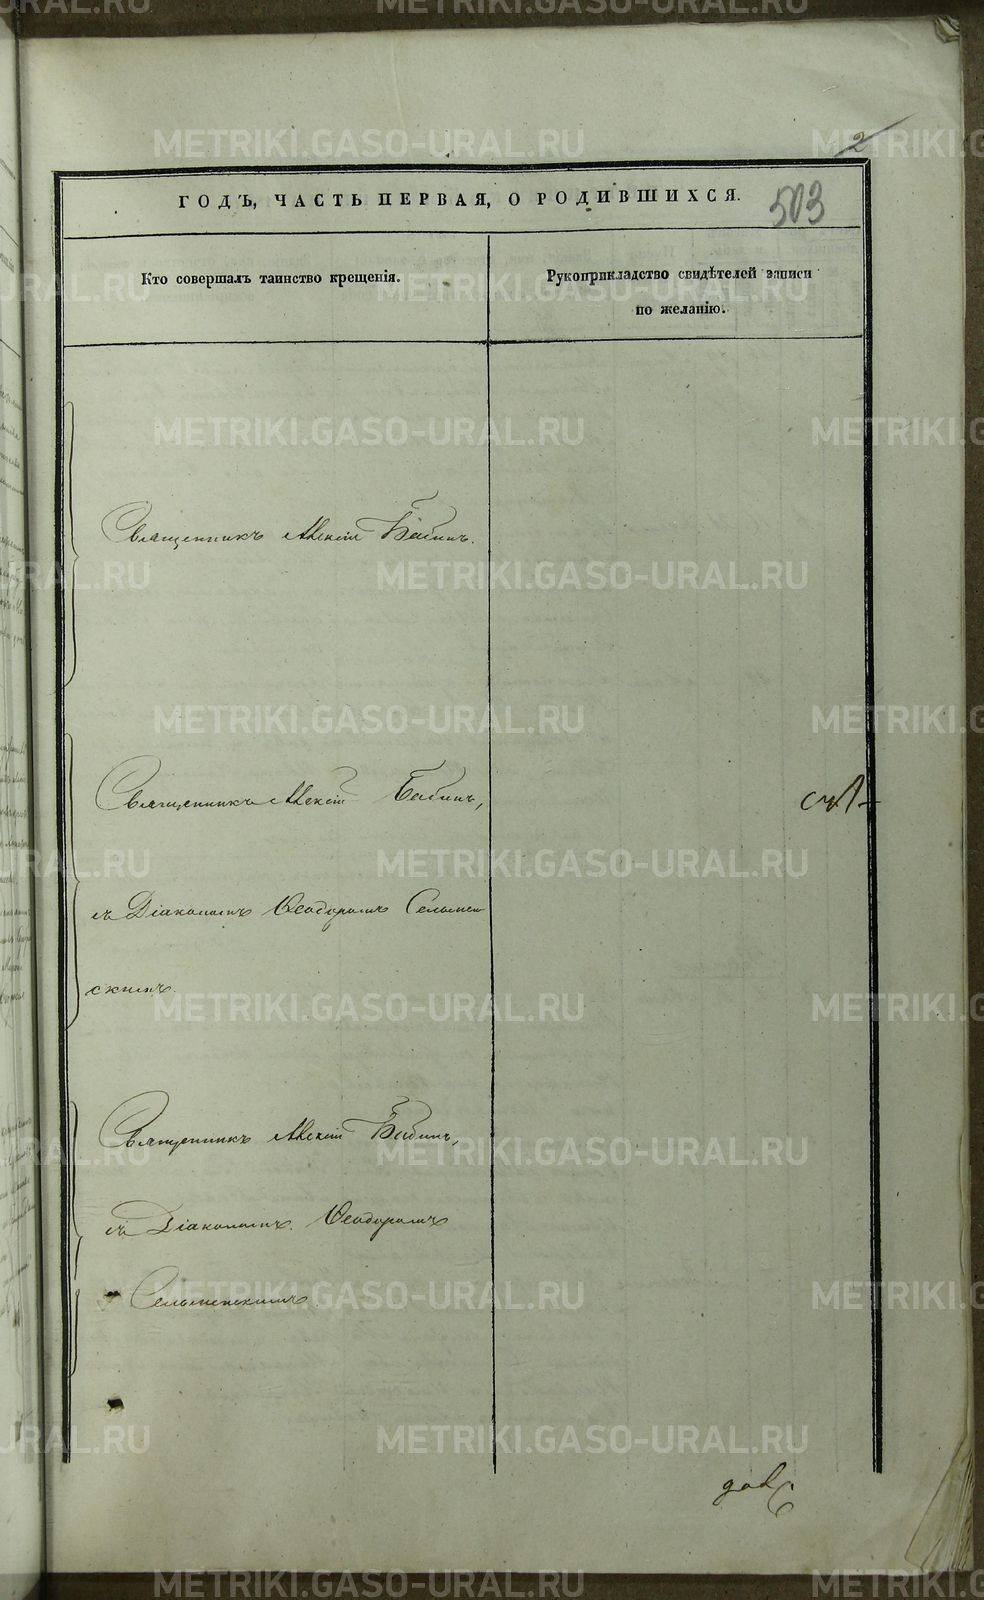 2
ГОДЪ, ЧАСТЬ ПЕРВАЯ, О РОДИВШИХСЯ.
503
Кто совершалъ таинство крещенія.
Рукоприкладство свидѣтелей записи
по желанію.
Священникъ Алексій Бабинъ.
Священникъ Алексій Бабинъ,
съ Діакономъ Ѳеодоромъ Сельмен
скимъ.
Священникъ Алексій Бабинъ,
съ Діакономъ Ѳеодоромъ
Сельменскимъ
METRIKI.GASO-URAL.RU